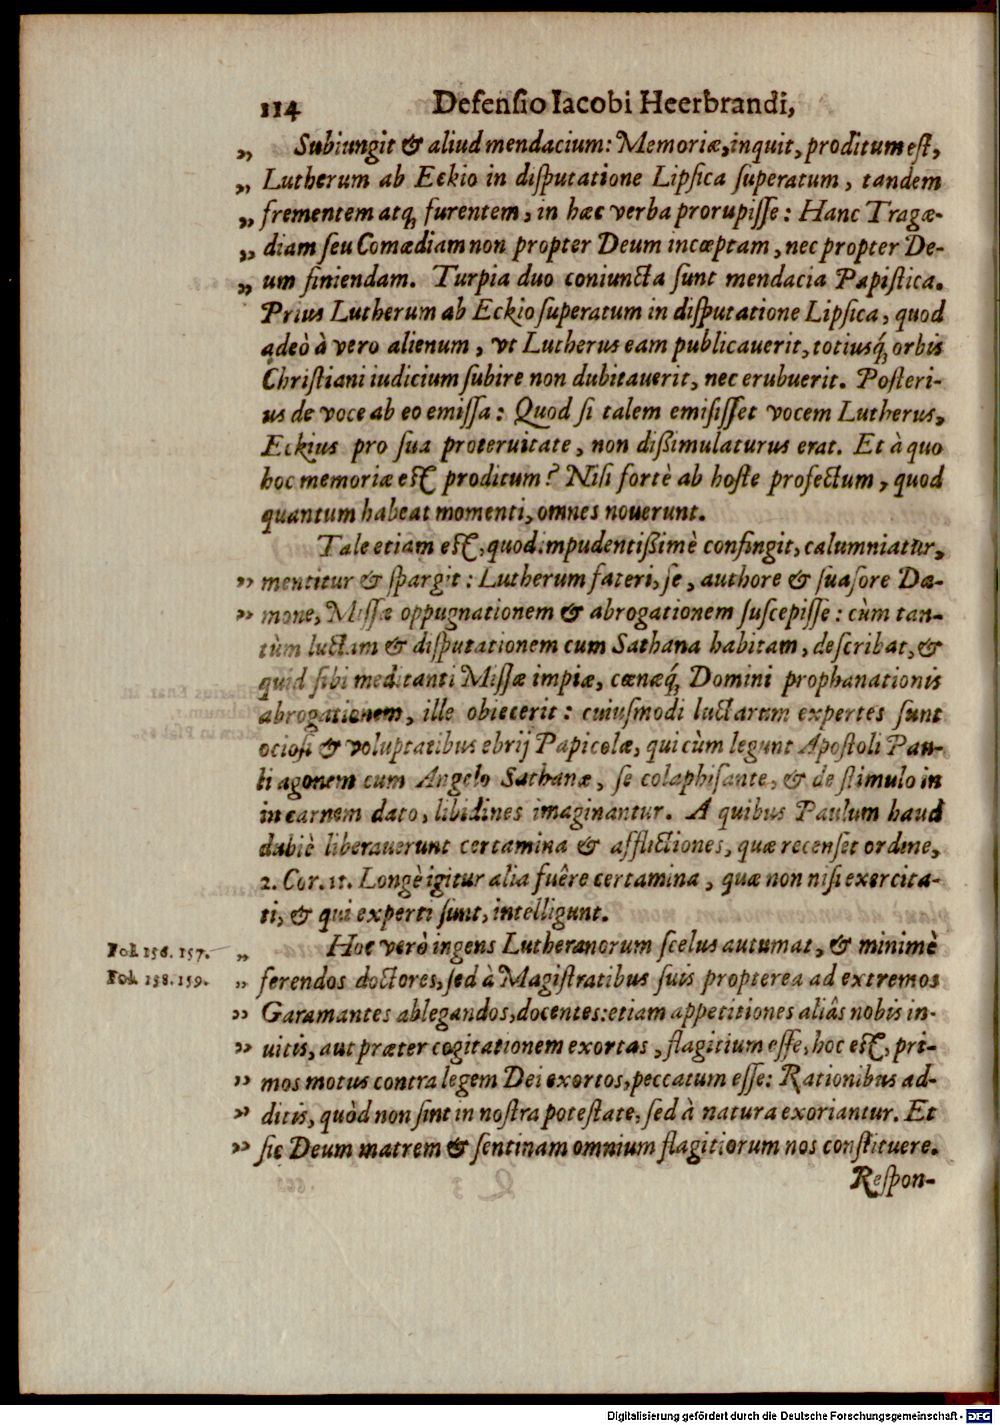 114 Defensio Iacobi Heerbrandi,
„ Subiungit & aliud mendacium: Memoriæ, inquit, proditum est,
„ Lutherum ab Eckio in disputatione Lipsica superatum, tandem
„ frementem atq́; furentem, in hæc verba prorupisse: Hanc Tragœ-
„ diam seu Comœdiam non propter Deum incœptam, nec propter De-
„ um finiendam. Turpia duo coniuncta sunt mendacia Papistica.
Prius Lutherum ab Eckio superatum in disputatione Lipsica, quod
adeò à vero alienum, vt Lutherus eam publicauerit, totiusq́; orbis
Christiani iudicium subire non dubitauerit, nec erubuerit. Posteri-
us de voce ab eo emissa: Quod si talem emisisset vocem Lutherus,
Eckius pro sua proteruitate, non dißimulaturus erat. Et à quo
hoc memoriæ est proditum? Nisi fortè ab hoste profectum, quod
quantum habeat momenti, omnes nouerunt.
Tale etiam est, quod impudentißimè confingit, calumniatur,
„ mentitur & spargit: Lutherum fateri, se, authore & suasore Dæ-
„ mone, Missæ oppugnationem & abrogationem suscepisse: cùm tan-
tùm luctam & disputationem cum Sathana habitam, describat, &
quid sibi meditanti Missæ impiæ, cœnæq́; Domini prophanationis
abrogationem, ille obiecerit: cuiusmodi luctarum expertes sunt
ociosi & voluptatibus ebrij Papicolæ, qui cùm legunt Apostoli Pau-
li agonem cum Angelo Sathanæ, se colaphisante, & de stimulo in
in carnem dato, libidines imaginantur. A quibus Paulum haud
dubiè liberauerunt certamina & afflictiones, quæ recenset ordine,
2. Cor. 11. Longè igitur alia fuêre certamina, quæ non nisi exercita-
ti, & qui experti sunt, intelligunt.
Fol. 156. 157. „ Hoc verò ingens Lutheranorum scelus autumat, & minimè
Fol. 158. 159. „ ferendos doctores, sed à Magistratibus suis propterea ad extremos
„ Garamantes ablegandos, docentes: etiam appetitiones aliâs nobis in-
„ uitis, aut præter cogitationem exortas, flagitium esse, hoc est, pri-
„ mos motus contra legem Dei exortos, peccatum esse: Rationibus ad-
„ ditis, quòd non sint in nostra potestate, sed à natura exoriantur. Et
„ sic Deum matrem & sentinam omnium flagitiorum nos constituere.
Respon-
Digitalisierung gefördert durch die Deutsche Forschungsgemeinschaft - DFG